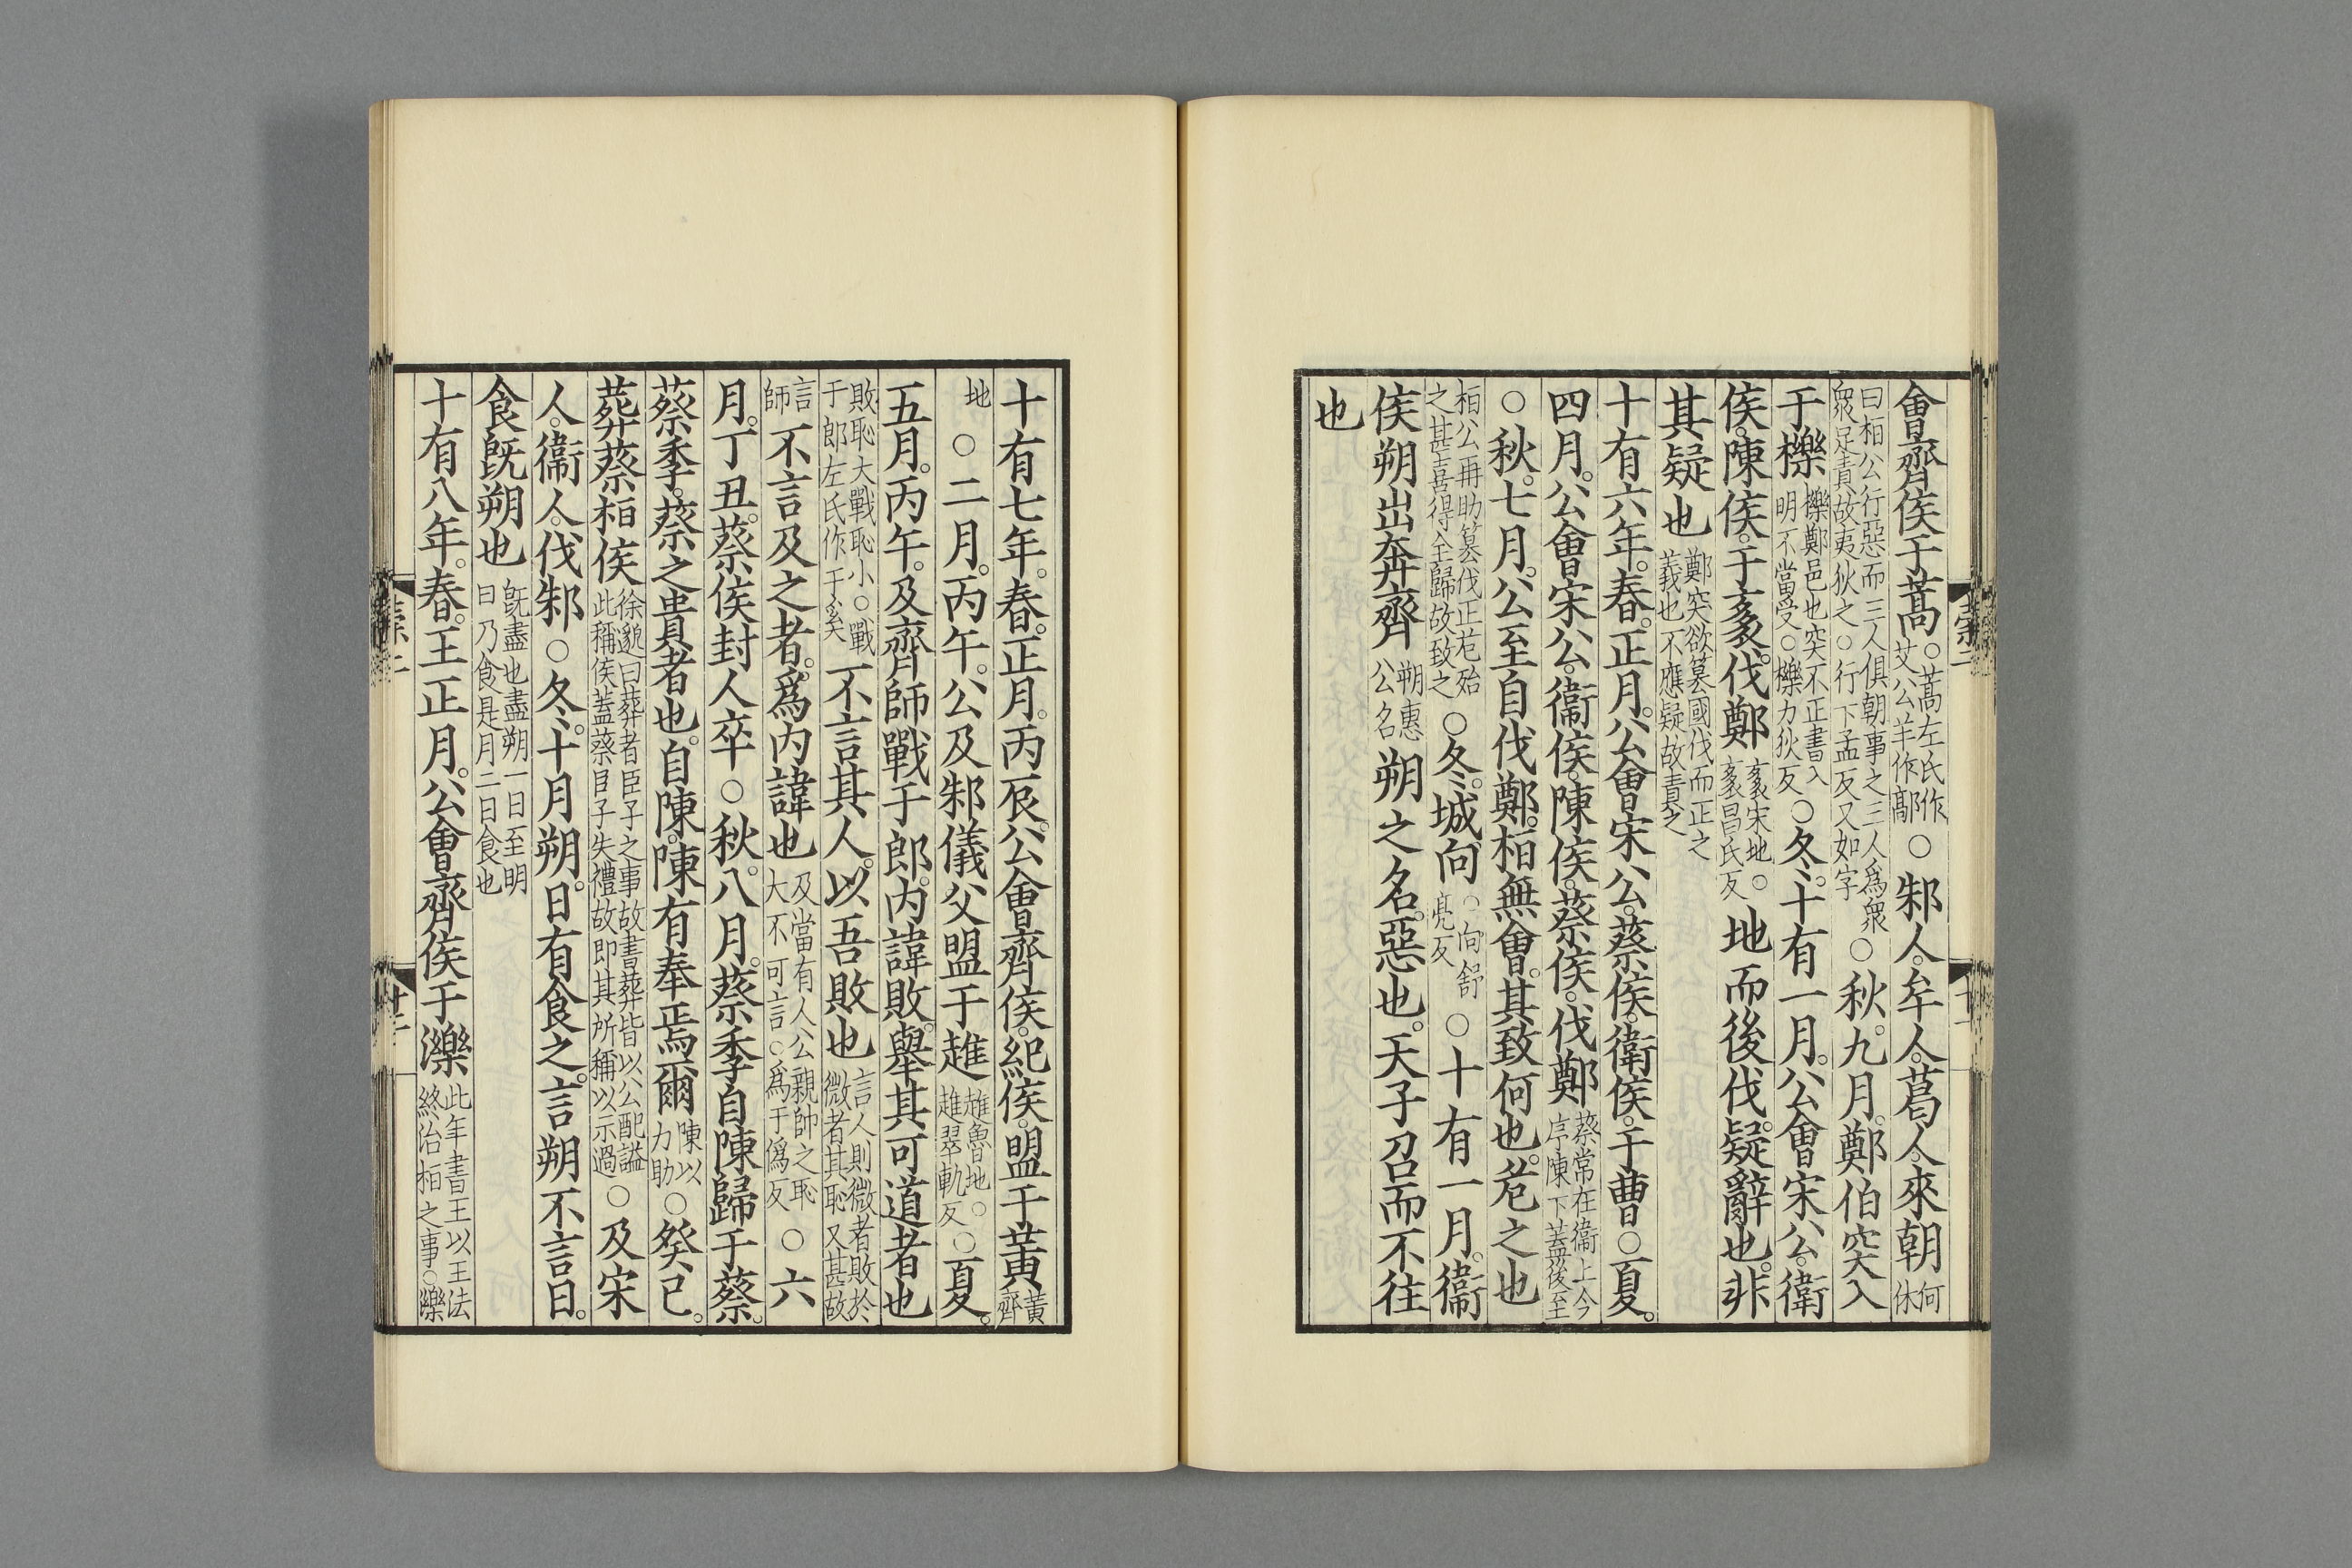 會齊侯于蒿。○蒿左氏作艾公羊作鄗○邾人。牟人。葛人。來朝何休
曰桓公行惡而三人俱朝事之三人爲衆衆足責故夷狄之○行下孟反又如字○秋。九月。鄭伯突入
于櫟櫟鄭邑也突不正書入明不當受○櫟力狄反○冬。十有一月。公會宋公。衛
侯。陳侯。于袲。伐鄭袲宋地。○袲昌氏反地而後伐。疑辭也。非
其疑也鄭突欲篡國伐而正之義也不應疑故責之
十有六年。春。正月。公會宋公。蔡侯。衛侯。于曹○夏。
四月。公會宋公。衞侯。陳侯。蔡侯。伐鄭蔡常在衞上今序陳下蓋後至
○秋。七月。公至自伐鄭。桓無會。其致何也。危之也
桓公再助篡伐正危殆之甚喜得全歸故致之○冬。城向○向舒亮反○十有一月。衞
侯朔出奔齊朔惠公名朔之名。惡也。天子召而不往
也
十有七年。春。正月。丙辰。公會齊侯。紀侯。盟于黃黃齊
地○二月。丙午。公及邾儀父盟于趡趡魯地。○趡翠軌反○夏。
五月。丙午。及齊師戰于郎。內諱敗。舉其可道者也
敗恥大戰恥小○戰于郎左氏作于奚不言其人。以吾敗也言人則微者敗於微者其恥又甚故
言師不言及之者。爲內諱也及當有人公親帥之恥大不可言○爲于僞反○六
月。丁丑。蔡侯封人卒○秋。八月。蔡季自陳歸于蔡。
蔡季。蔡之貴者也。自陳。陳有奉焉爾陳以力助○癸巳。
葬蔡桓侯徐邈曰葬者臣子之事故書葬皆以公配謚此稱侯蓋蔡臣子失禮故即其所稱以示過○及宋
人。衞人。伐邾○冬。十月朔。日有食之。言朔不言日。
食旣朔也旣盡也盡朔一日至明日乃食是月二日食也
十有八年。春。王正月。公會齊侯于濼此年書王以王法終治桓之事○濼